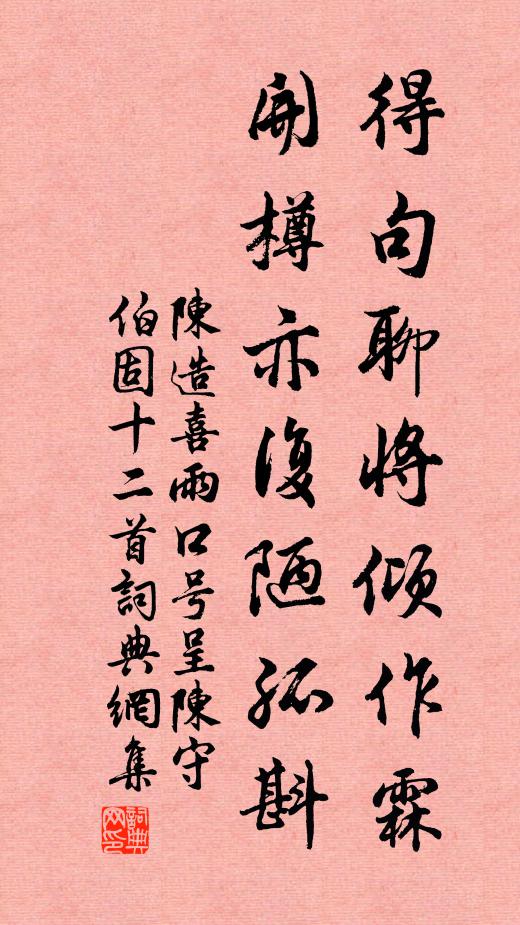 得句聊将傾作霖
開樽亦復陋孤斟
陳造喜雨口号呈陳守
伯固十二首詞典網集
詞典网印